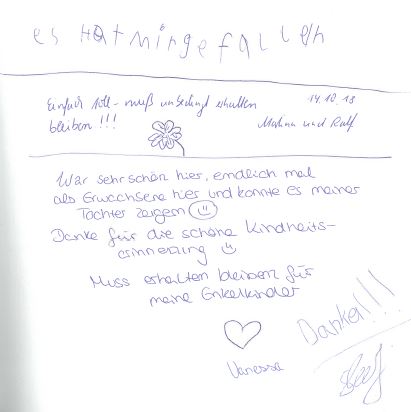 es HAt Mir gefallen
Einfach toll - muß unbedingt erhalten
bleiben!!!
14.10.13
und Ralf
War sehr schön hier, endlich mal
als Erwachsene hier und konnte es meiner
Tochter zeigen
Danke für die schöne Kindheits-
erinnerung
Muss erhalten bleiben für
meine Enkelkinder
Vanessa
Danke!!!